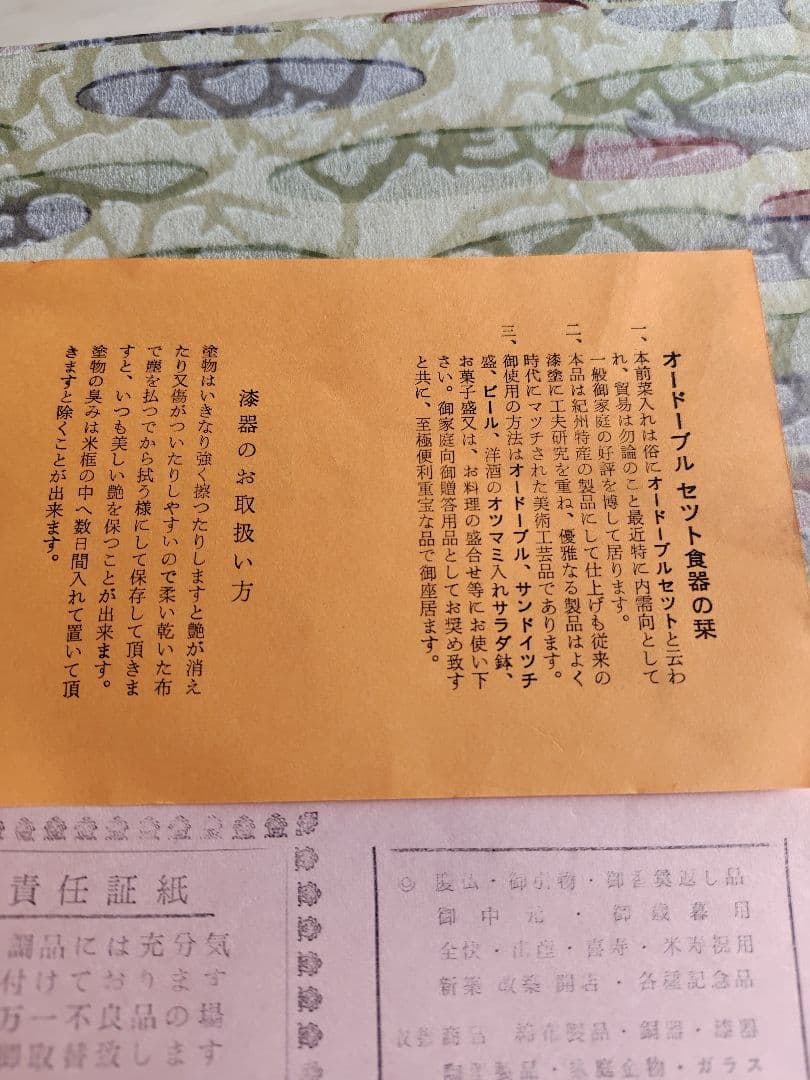 オードーブル セツト食器の栞
一、本前菜入れは俗にオードーブルセツトと云わ
れ、貿易は勿論のこと最近特に内需向として
一般御家庭の好評を博して居ります。
二、本品は紀州特産の製品にして仕上げも従来の
漆塗に工夫研究を重ね、優雅なる製品はよく
時代にマツチされた美術工芸品であります。
三、御使用の方法はオードーブル、サンドイツチ
盛、ビール、洋酒のオツマミ入れサラダ鉢、
お菓子盛又は、お料理の盛合せ等にお使い下
さい。御家庭向御贈答用品としてお奨め致す
と共に、至極便利重宝な品で御座居ます。
漆器のお取扱い方
塗物はいきなり強く擦つたりしますと艶が消え
たり又傷がついたりしやすいので柔い乾いた布
で塵を払つてから拭う様にして保存して頂きま
すと、いつも美しい艶を保つことが出来ます。
塗物の臭みは米櫃の中へ数日間入れて置いて頂
きますと除くことが出来ます。
責任証紙
調品には充分気
付けております
万一不良品の場
御取替致します
慶仏・御引物・御香奠返し品
御中元・御歳暮用
全快・出産・喜寿・米寿祝用
新築 改築 開店・各種記念品
取扱商品 綿布製品・銅器・漆器
製品・家庭金物・ガラス